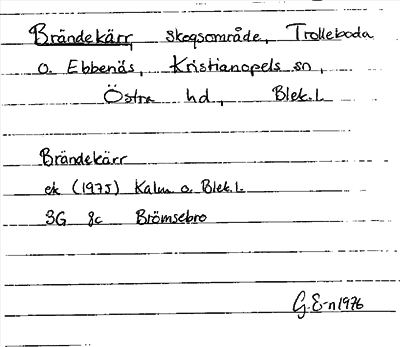 Brändekärr, skogsområde, Trolleboda
o. Ebbenäs, Kristianopels sn,
Östra hd, Blek.l.
Brändekärr
ek (1975) Kalm. o. Blek.l.
3G 8c Brömsebro
G.E-n 1976